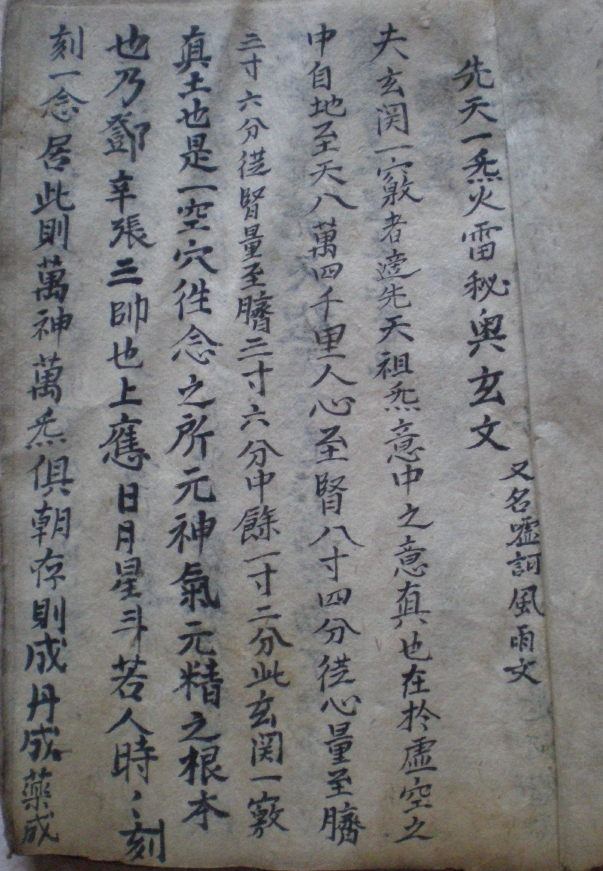 先天一炁火雷秘奥玄文
又名嘘訶風雨文
夫玄関一竅者逺先天祖炁意中之意真也在於虛空之
中自地至天八萬四千里人心至腎八寸四分従心量至臍
三寸六分従腎量至臍三寸六分中餘一寸二分此玄関一竅
真土也是一空穴徃念之所元神氣元精之根本
也乃鄧辛張三帥也上應日月星斗若人時〻刻
刻一念居此則萬神萬炁俱朝存則成丹成藥成